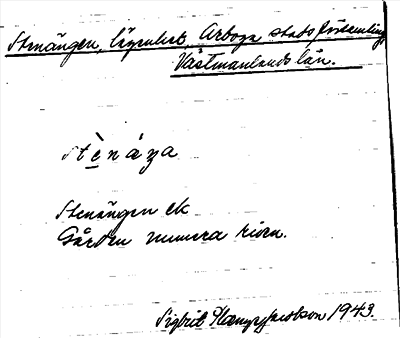 Stenängen, lägenhet, Arboga stadsförsamling,
Västmanlands län.
stènáŋa
Stenängen ek
Gården numera riven.
Sigbrit Jacobson 1943.